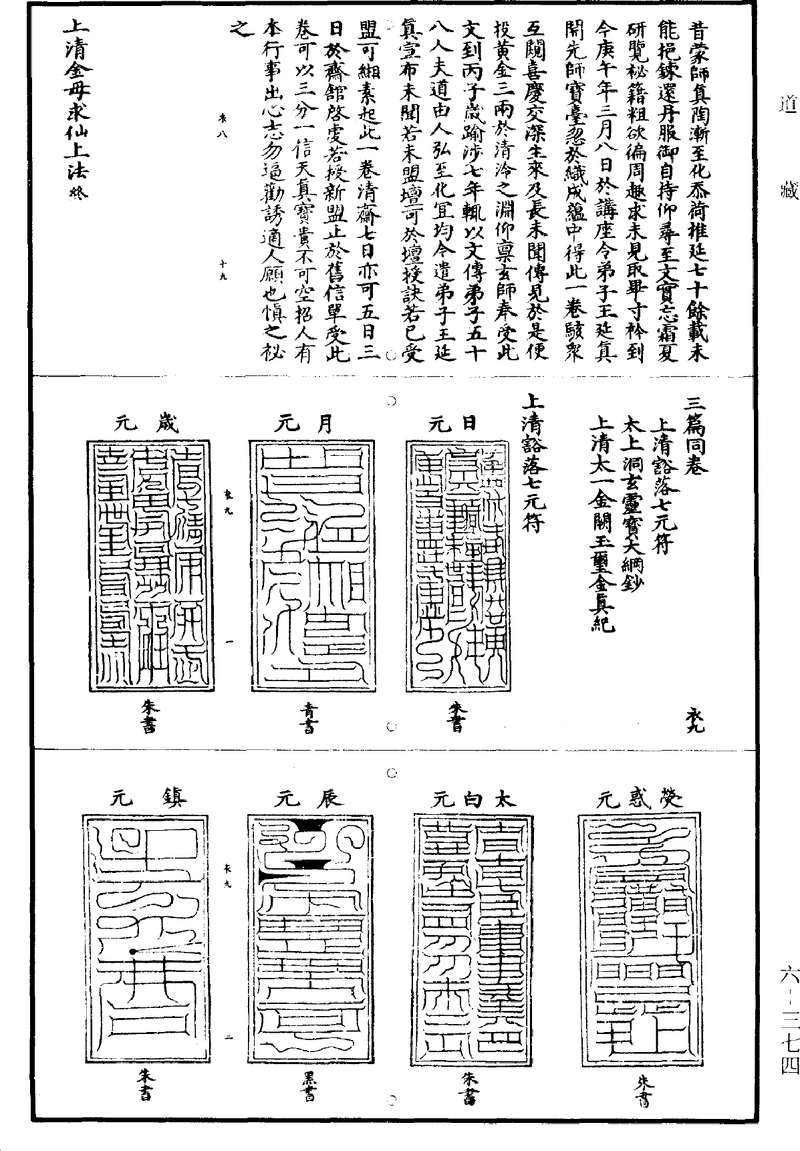 道藏
昔蒙師真陶漸至化忝荷推延七十餘載未
能挹鍊還丹服御自持仰尋至文實忘霜夏
研覽祕籍粗欲徧周趣求未見取畢寸衿到
今庚午年三月八日於講座令弟子王延真
開先師寶臺忽於織成蘊中得此一卷駭衆
互閱喜慶交深生來及長未聞傳見於是便
投黃金三兩於清泠之淵仰禀玄師奉受此
文到丙子歲踰涉七年輒以文傳弟子五十
八人夫道由人弘至化宜均今遣弟子王延
真宣布未聞若未盟壇可於壇授訣若已受
盟可緗素起此一卷清齋七日亦可五日三
日於齋館啓虔若授新盟止於舊信單受此
卷可以三分一信天真寶貴不可空招人有
本行事出心志勿逼勸誘適人願也愼之祕
之
衣八
十九
上清金母求仙上法終
三篇同卷
衣九
上清豁落七元符
太上洞玄靈寶大綱鈔
上清太一金闕玉璽金真紀
上清豁落七元符
日元
朱書
月元
青書
衣九
一
歲元
朱書
熒惑元
朱書
太白元
朱書
辰元
黑書
衣九
二
鎮元
朱書
六-三七四